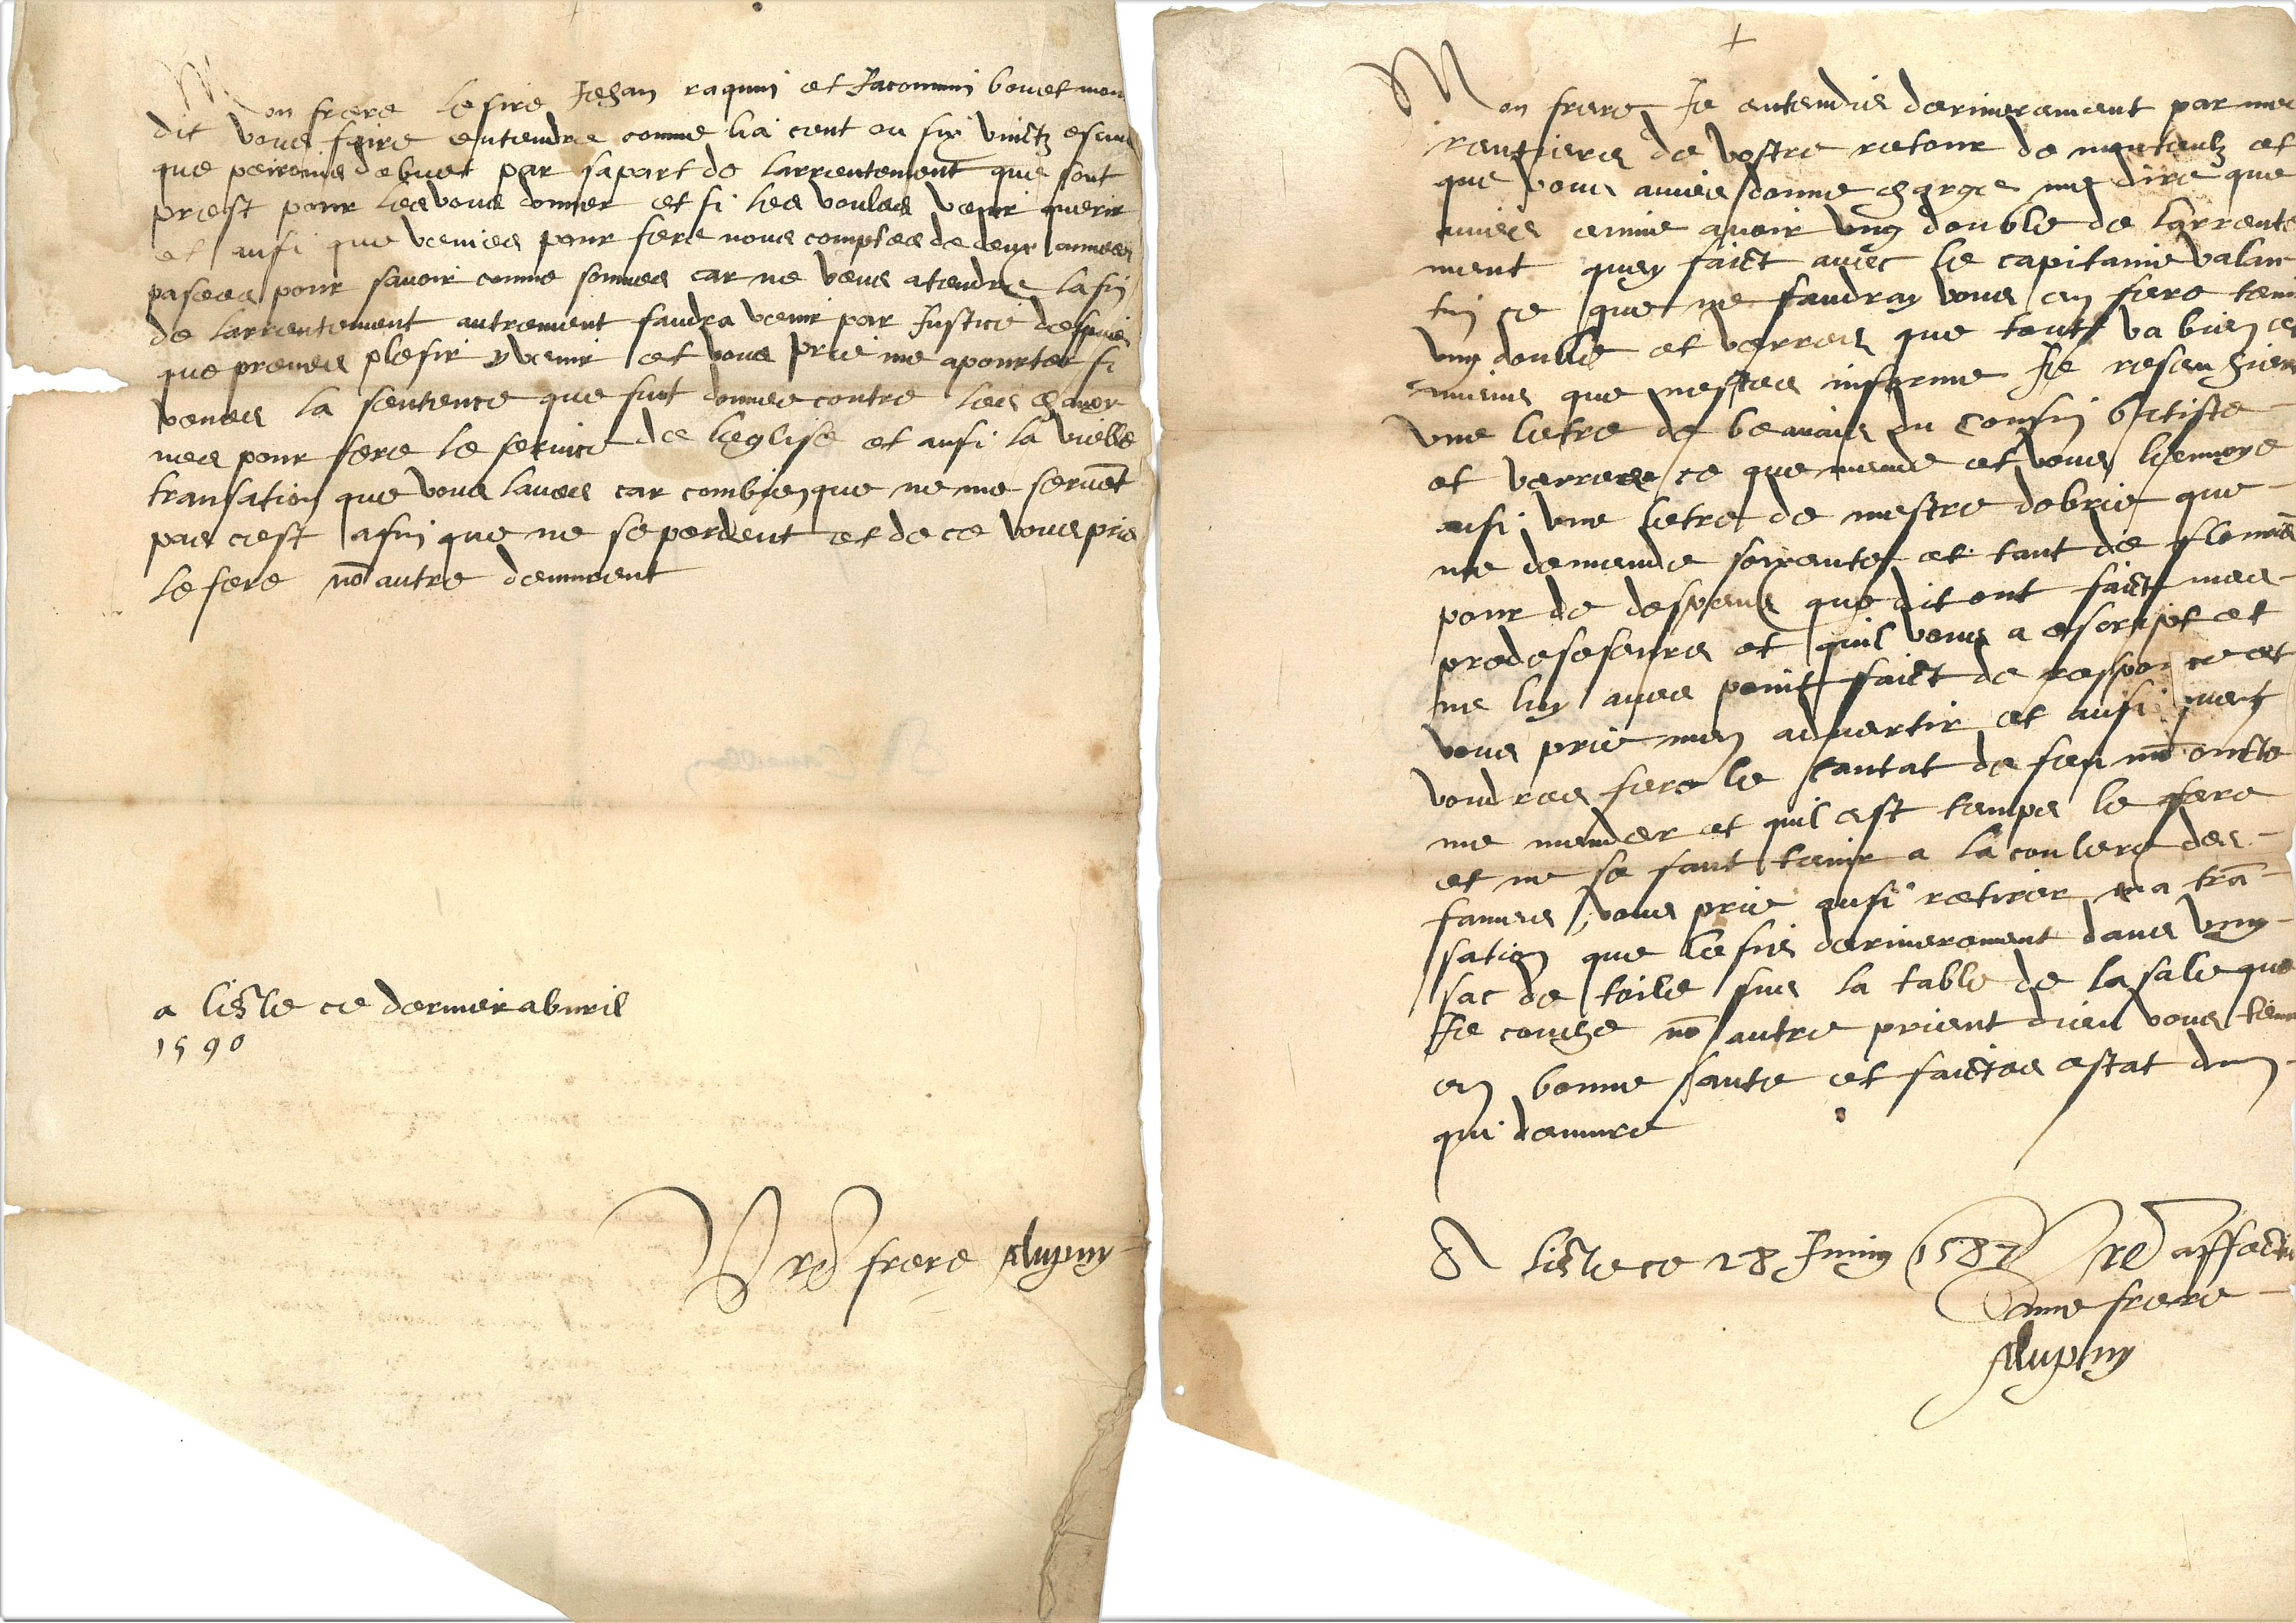 Mon frere le sire Jehan raquin et Jacomin bouet mon
dit vous faire entendre comme lia cent ou six vinctz escus
que peironis debuet par sa part de larrentement que sont
prest pour les vous donner et si les voules venir querir
et ausi que venies pour fere nous comptes de deux annees
pasees pour savoir comme sommes car ne veus atendre la fin
de larrentement autrement faudra venir par Justice
que prenes plesir y venir et vous prie me apourter si
venes la sentence que fut donnee contre les chanor
nes pour fere le service de leglise et ausi la vielle
transation que vous laves car combien que ne me servent
pas cest afin que ne se perdent et de ce vous prie
le fere no autre demurent
a lisle ce dernier abvril
1590
Vre frere Alupuy
+
Mon frere Je entendis dernierement par mes
rentiers de vostre retour de monteulz et
que vous avies donne charge me dire que
avies envie avoir ung double de larrente
ment quey faict avec le capitaine valan
tin ce que ne faudray vous en fere tenir
ung double et verres que tout va bien
mieux que mestes informe Je reseu hier
une letre de beauvais du cousin batiste
et verres ce que mende et vous lenvoye
ausi une letre de mestre dobrie que
me demende soixante et tant de florins
pour de despens que dit ont faict mes
predeseseurs et quil vous a escript et
ne luy aves point faict de responce et
vous prie men advertir et ausi quent
voudres fere le cantat de feu mo oncle
me mender et quil est temps le fere
et ne se faut tenir a la coulere des
fames, vous prie ausi retirer ma tran
sation que lesie dernierement dans ung
sac de toile sus la table de la sale que
Je couche no autre prient dieu vous tenir
en bonne sante et faictes estat dun
qui demure
A lisle ce 28 Juing 1587 Vre affectio
nne frere
Alupuy